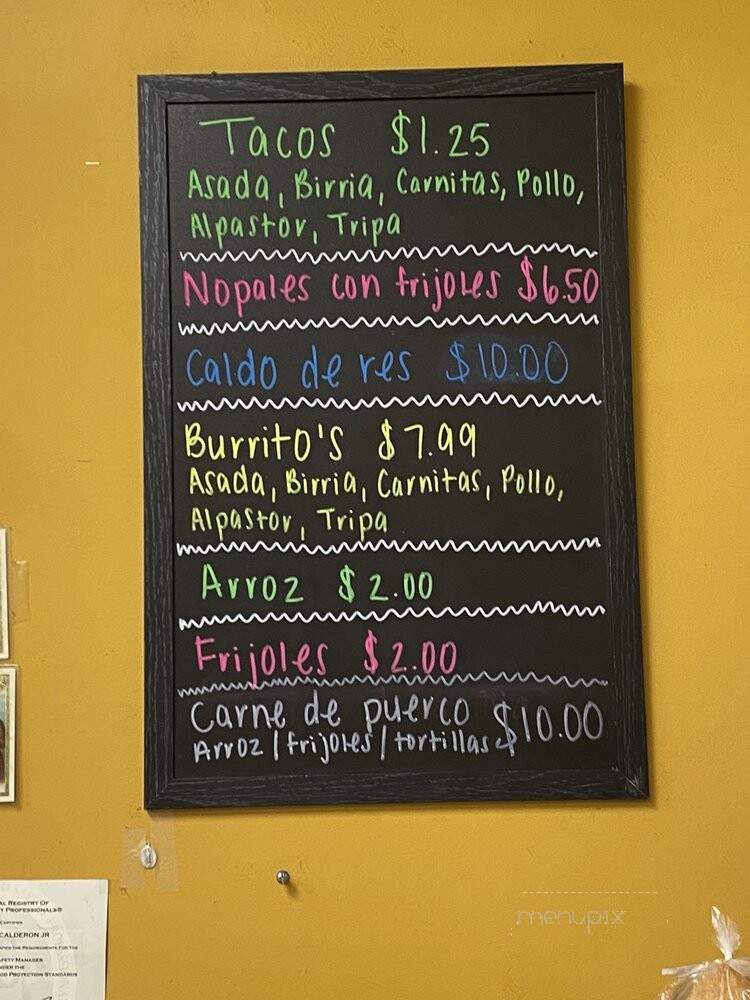 Tacos $1.25
Asada, Birria, Carnitas, Pollo,
Alpastor, Tripa
Nopales con frijoles $6.50
Caldo de res $10.00
Burrito's $7.99
Asada, Birria, Carnitas, Pollo,
Alpastor, Tripa
Arroz $2.00
Frijoles $2.00
Carne de puerco $10.00
Arroz/frijoles/tortillas
AL REGISTRY OF
Y PROFESSIONALS®
CALDERON JR
THE REQUIREMENTS FOR THE
MANAGER
UNDER THE
PROTECTION STANDARDS
menupix